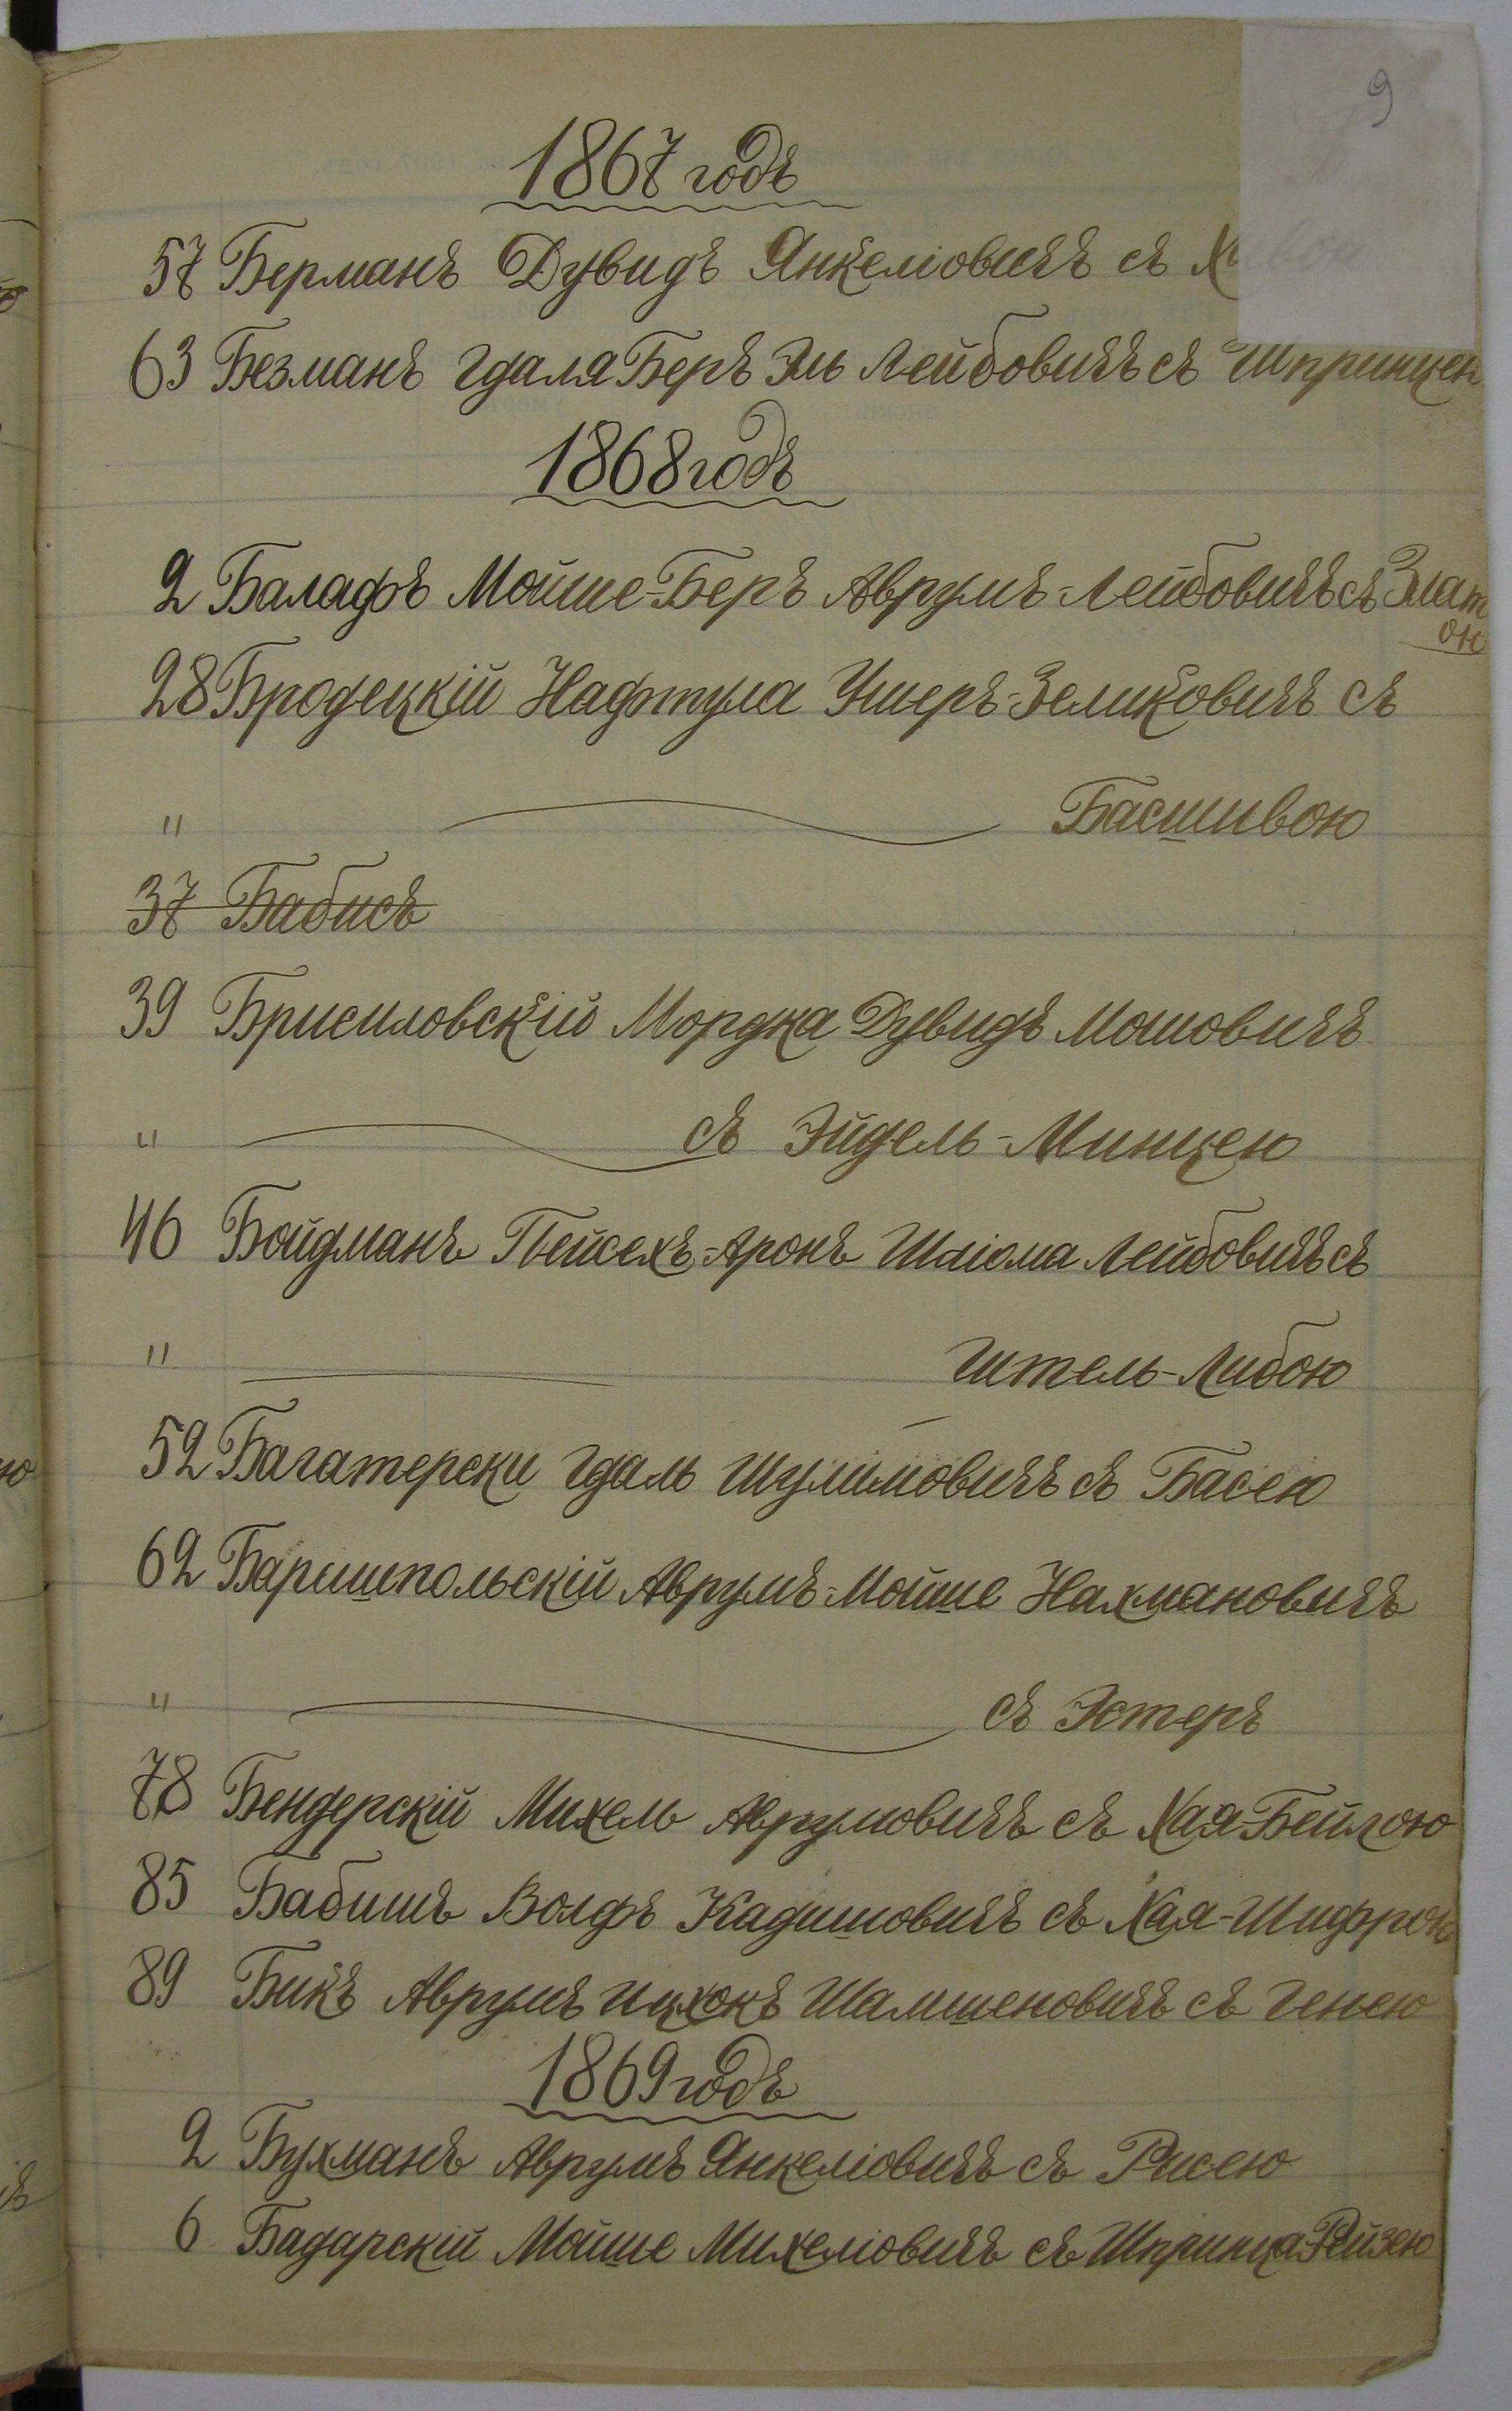 9
1867 годъ
57 Берманъ Дувидъ Янкеліовичъ съ
63 Безманъ Гдаля Беръ Эль Лейбовичъ съ Шпринцею
1868 годъ
2 Балафъ Мойше-Беръ Аврумъ-Лейбовичъ съ Злат
ою
28 Бродецкій Нафтула Ушеръ-Зеликовичъ съ
" Басшивою
37 Бабисъ
39 Брисиловскій Мордка Дувидъ Мошовичъ
" съ Эйдель-Минцею
46 Бойдманъ Пейсехъ-Аронъ Шліома Лейбовичъ съ
" Итель-Либою
52 Багатерски Гдаль Шулимовичъ съ Басею
62 Баришпольскій Аврумъ-Мойше Нахмановичъ
" съ Эстеръ
78 Бендерскій Михель Аврумовичъ съ Хая-Бейлою
85 Бабишъ Волфъ Кадишовичъ съ Хая-Шифрою
89 Бикъ Аврумъ Ицхокъ Шамшеновичъ съ Генею
1869 годъ
2 Бухманъ Аврумъ Янкеліовичъ съ Рисею
6 Бадарскій Мойше Михеліовичъ съ Шпринца Рейзею